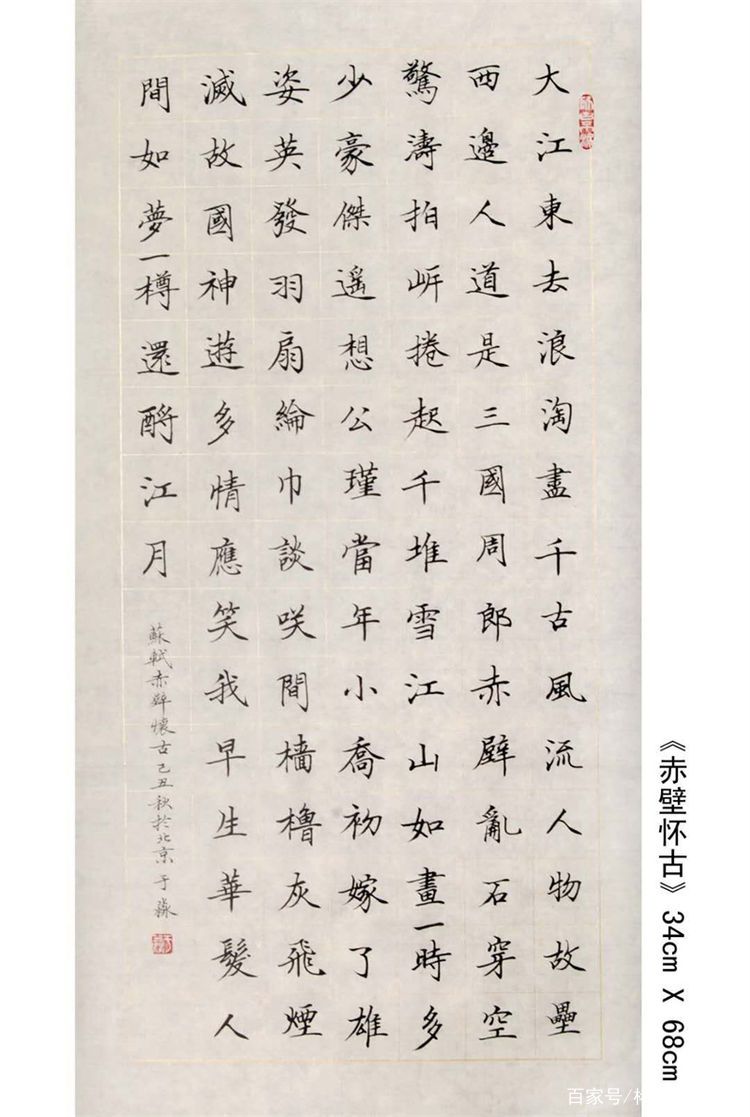 大江東去浪淘盡千古風流人物故壘
西邊人道是三國周郎赤壁亂石穿空
驚濤拍岍捲起千堆雪江山如畫一時多
少豪傑遥想公瑾當年小喬初嫁了雄
姿英發羽扇綸巾談咲間檣櫓灰飛煙
滅故國神遊多情應笑我早生華髮人
間如夢一樽還酹江月
蘇軾赤壁懷古己丑秋於北京于淼
《赤壁怀古》34cm X 68cm
百家号/